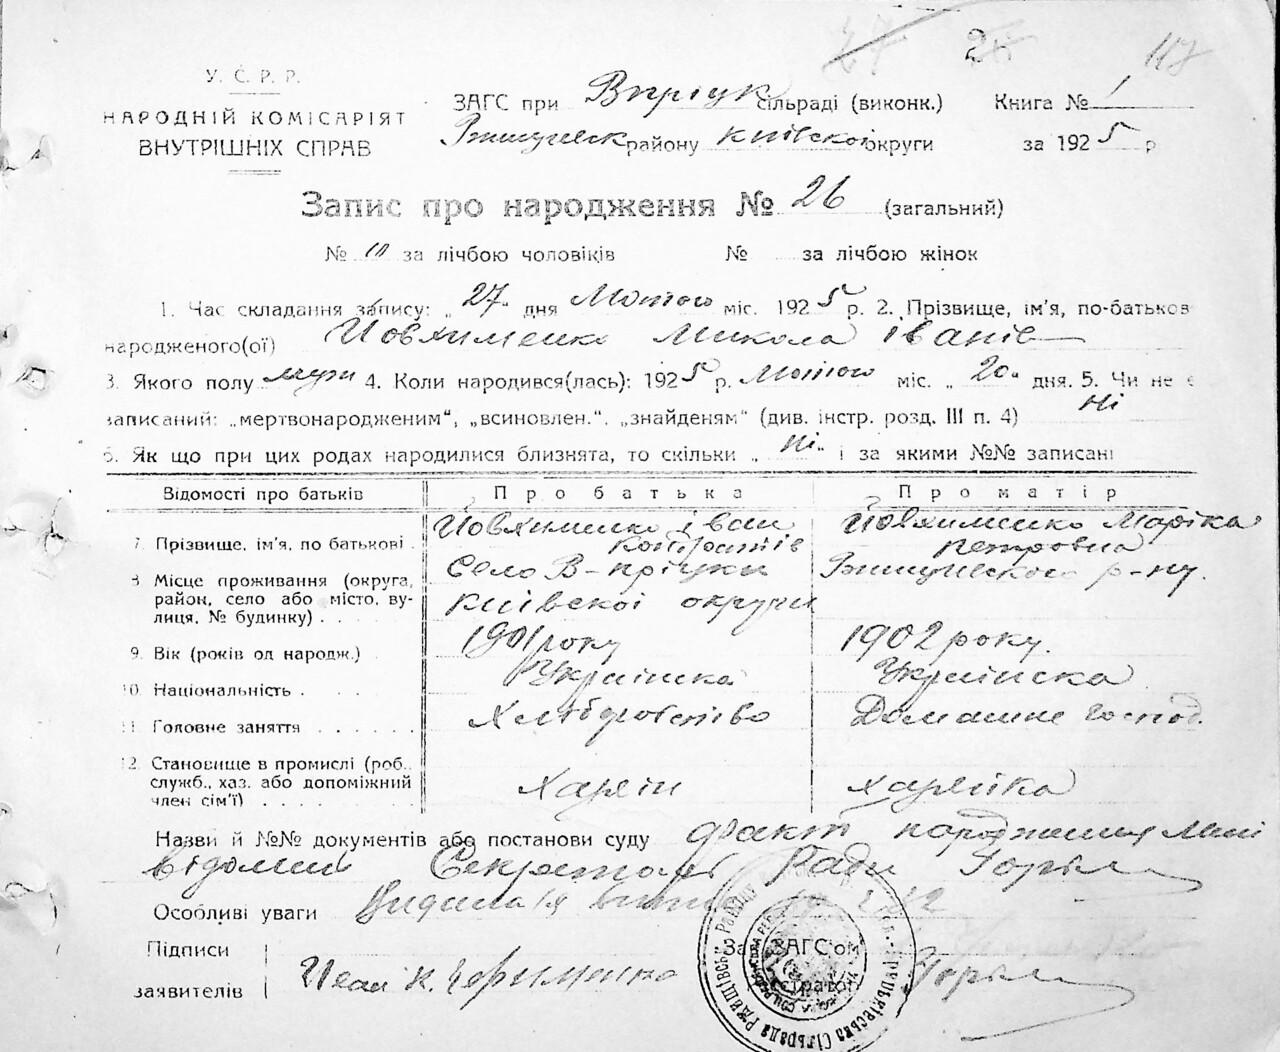 2
117
У. С. Р. Р.
НАРОДНІЙ КОМІСАРІЯТ
ВНУТРІШНІХ СПРАВ
ЗАГС при В пріцук сільраді (виконк.) Книга № 1
Ржищевск району київскої округи за 1925 р
Запис про народження № 26 (загальний)
№ 10 за лічбою чоловіків № за лічбою жінок
1. Час складання запису: „27" дня Лютого міс. 1925 р. 2. Прізвище, ім'я, по-батьков
народженого(ої) Йовхименко Микола Іванів
3. Якого полу муж 4. Коли народився(лась): 1925 р. Лютого міс. „20" дня. 5. Чи не є
записаний: „мертвонародженим", „всиновлен.", „знайденям" (див. інстр. розд. III п. 4) Ні
6. Як що при цих родах народилися близнята, то скільки „Ні" і за якими №№ записані
Відомості про батьків Про батька Про матір
7. Прізвище, ім'я, по батькові Йовхименко Іван Кондратів Йовхименко Маріка петровна
8 Місце проживання (округа, район, село або місто, вулиця, № будинку) Село В-пріцки Ржищевского р-ну.
Київскої округи
9. Вік (років од народж.) 1901 року 1902 року.
10. Національність Українска Українска
11. Головне заняття Хлібробство Домашне господ.
12. Становище в промислі (роб., служб., хаз. або допоміжний член сім'ї) Хазяін хазяйка
Назви й №№ документів або постанови суду факт народження Мені
відомий Секретарь Ради
Особливі уваги Видана
Підписи
заявителів Иван К.
Зав. ЗАГС'ом